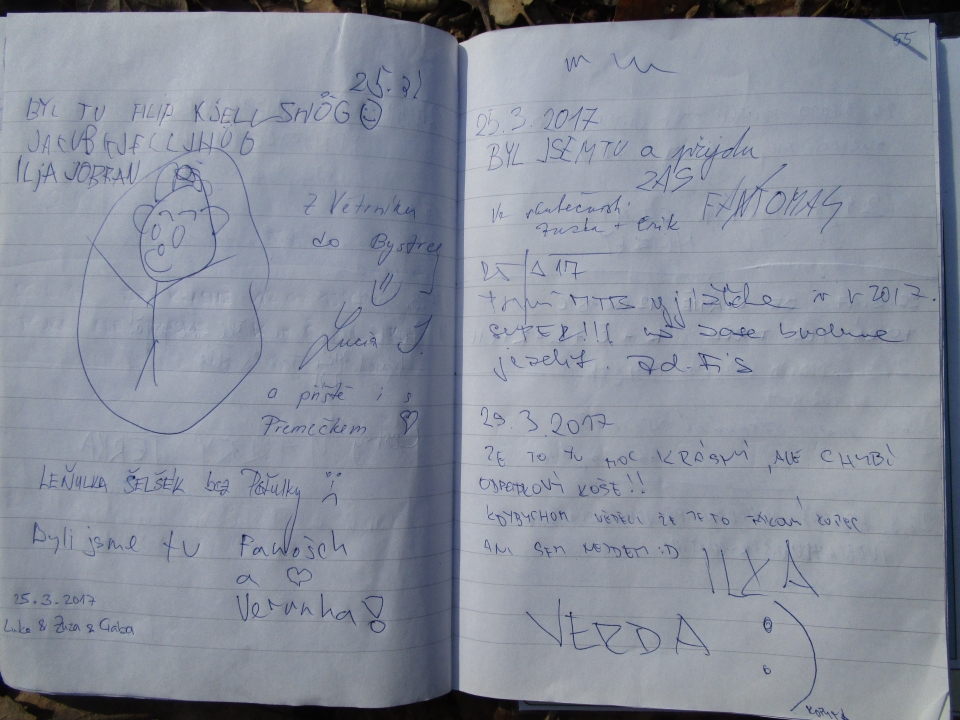 25.3/
BYL TU FILIP KJELL SNÖG
JAKUB KJELL SNÖG
ILJA JOBRAN
z Větrníku
do Bystrej
Lucia J.
a příště i s
Přemečkem
LEŇULKA ŠELŠEK bez Páťulky
Byli jsme tu Pawošch
a ♡
Verunha!
25.3.2017
Luke & Zuza & Gaba
55
25.3.2017
BYL JSEM TU a přijdu
ZAS
FANTOMAS
Ve skutečnosti
Zuzka + Erik
25/3 17
MTB vyjížďka v r 2017.
SUPER!!! zase budeme
jezdit.
29.3.2017
JE TO TU MOC KRÁSNÝ, ALE CHYBÍ
ODPADKOVÝ KOŠE!!
KDYBYCHOM VĚDĚLI ŽE JE TO TAKOVÝ KOPEC
ANI SEM NEJDEM :D
VERDA :)